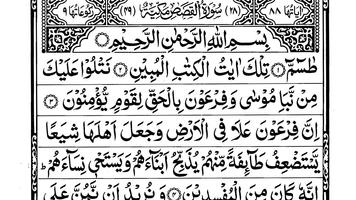 اٰیَاتُهَا ۸۸ (۲۸) سُوْرَةُ الْقَصَصِ مَكِّیَّةٌ (۴۹) رُكُوْعَاتُهَا ۹
بِسْمِ اللّٰهِ الرَّحْمٰنِ الرَّحِیْمِ
طٰسٓمّٓ ۝۱ تِلْكَ اٰیٰتُ الْكِتٰبِ الْمُبِیْنِ ۝۲ نَتْلُوْا عَلَیْكَ
مِنْ نَّبَاِ مُوْسٰی وَ فِرْعَوْنَ بِالْحَقِّ لِقَوْمٍ یُّؤْمِنُوْنَ ۝۳
اِنَّ فِرْعَوْنَ عَلَا فِی الْاَرْضِ وَ جَعَلَ اَهْلَهَا شِیَعًا
یَّسْتَضْعِفُ طَآىِٕفَةً مِّنْهُمْ یُذَبِّحُ اَبْنَآءَهُمْ وَ یَسْتَحْیٖ نِسَآءَهُمْ ؕ
اِنَّهٗ كَانَ مِنَ الْمُفْسِدِیْنَ ۝۴ وَ نُرِیْدُ اَنْ نَّمُنَّ عَلَی